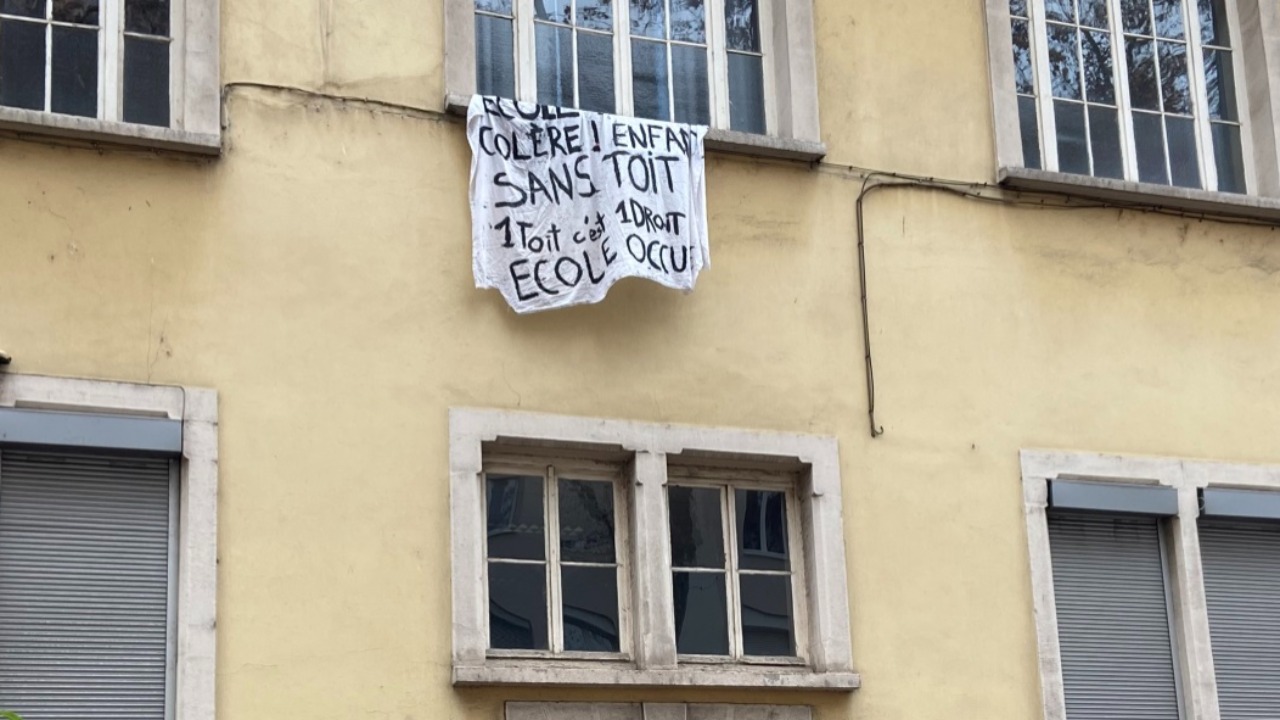 ECOLE
COLÈRE ! ENFANT
SANS TOIT
1 Toit c'est 1 DROIT
ECOLE OCCU